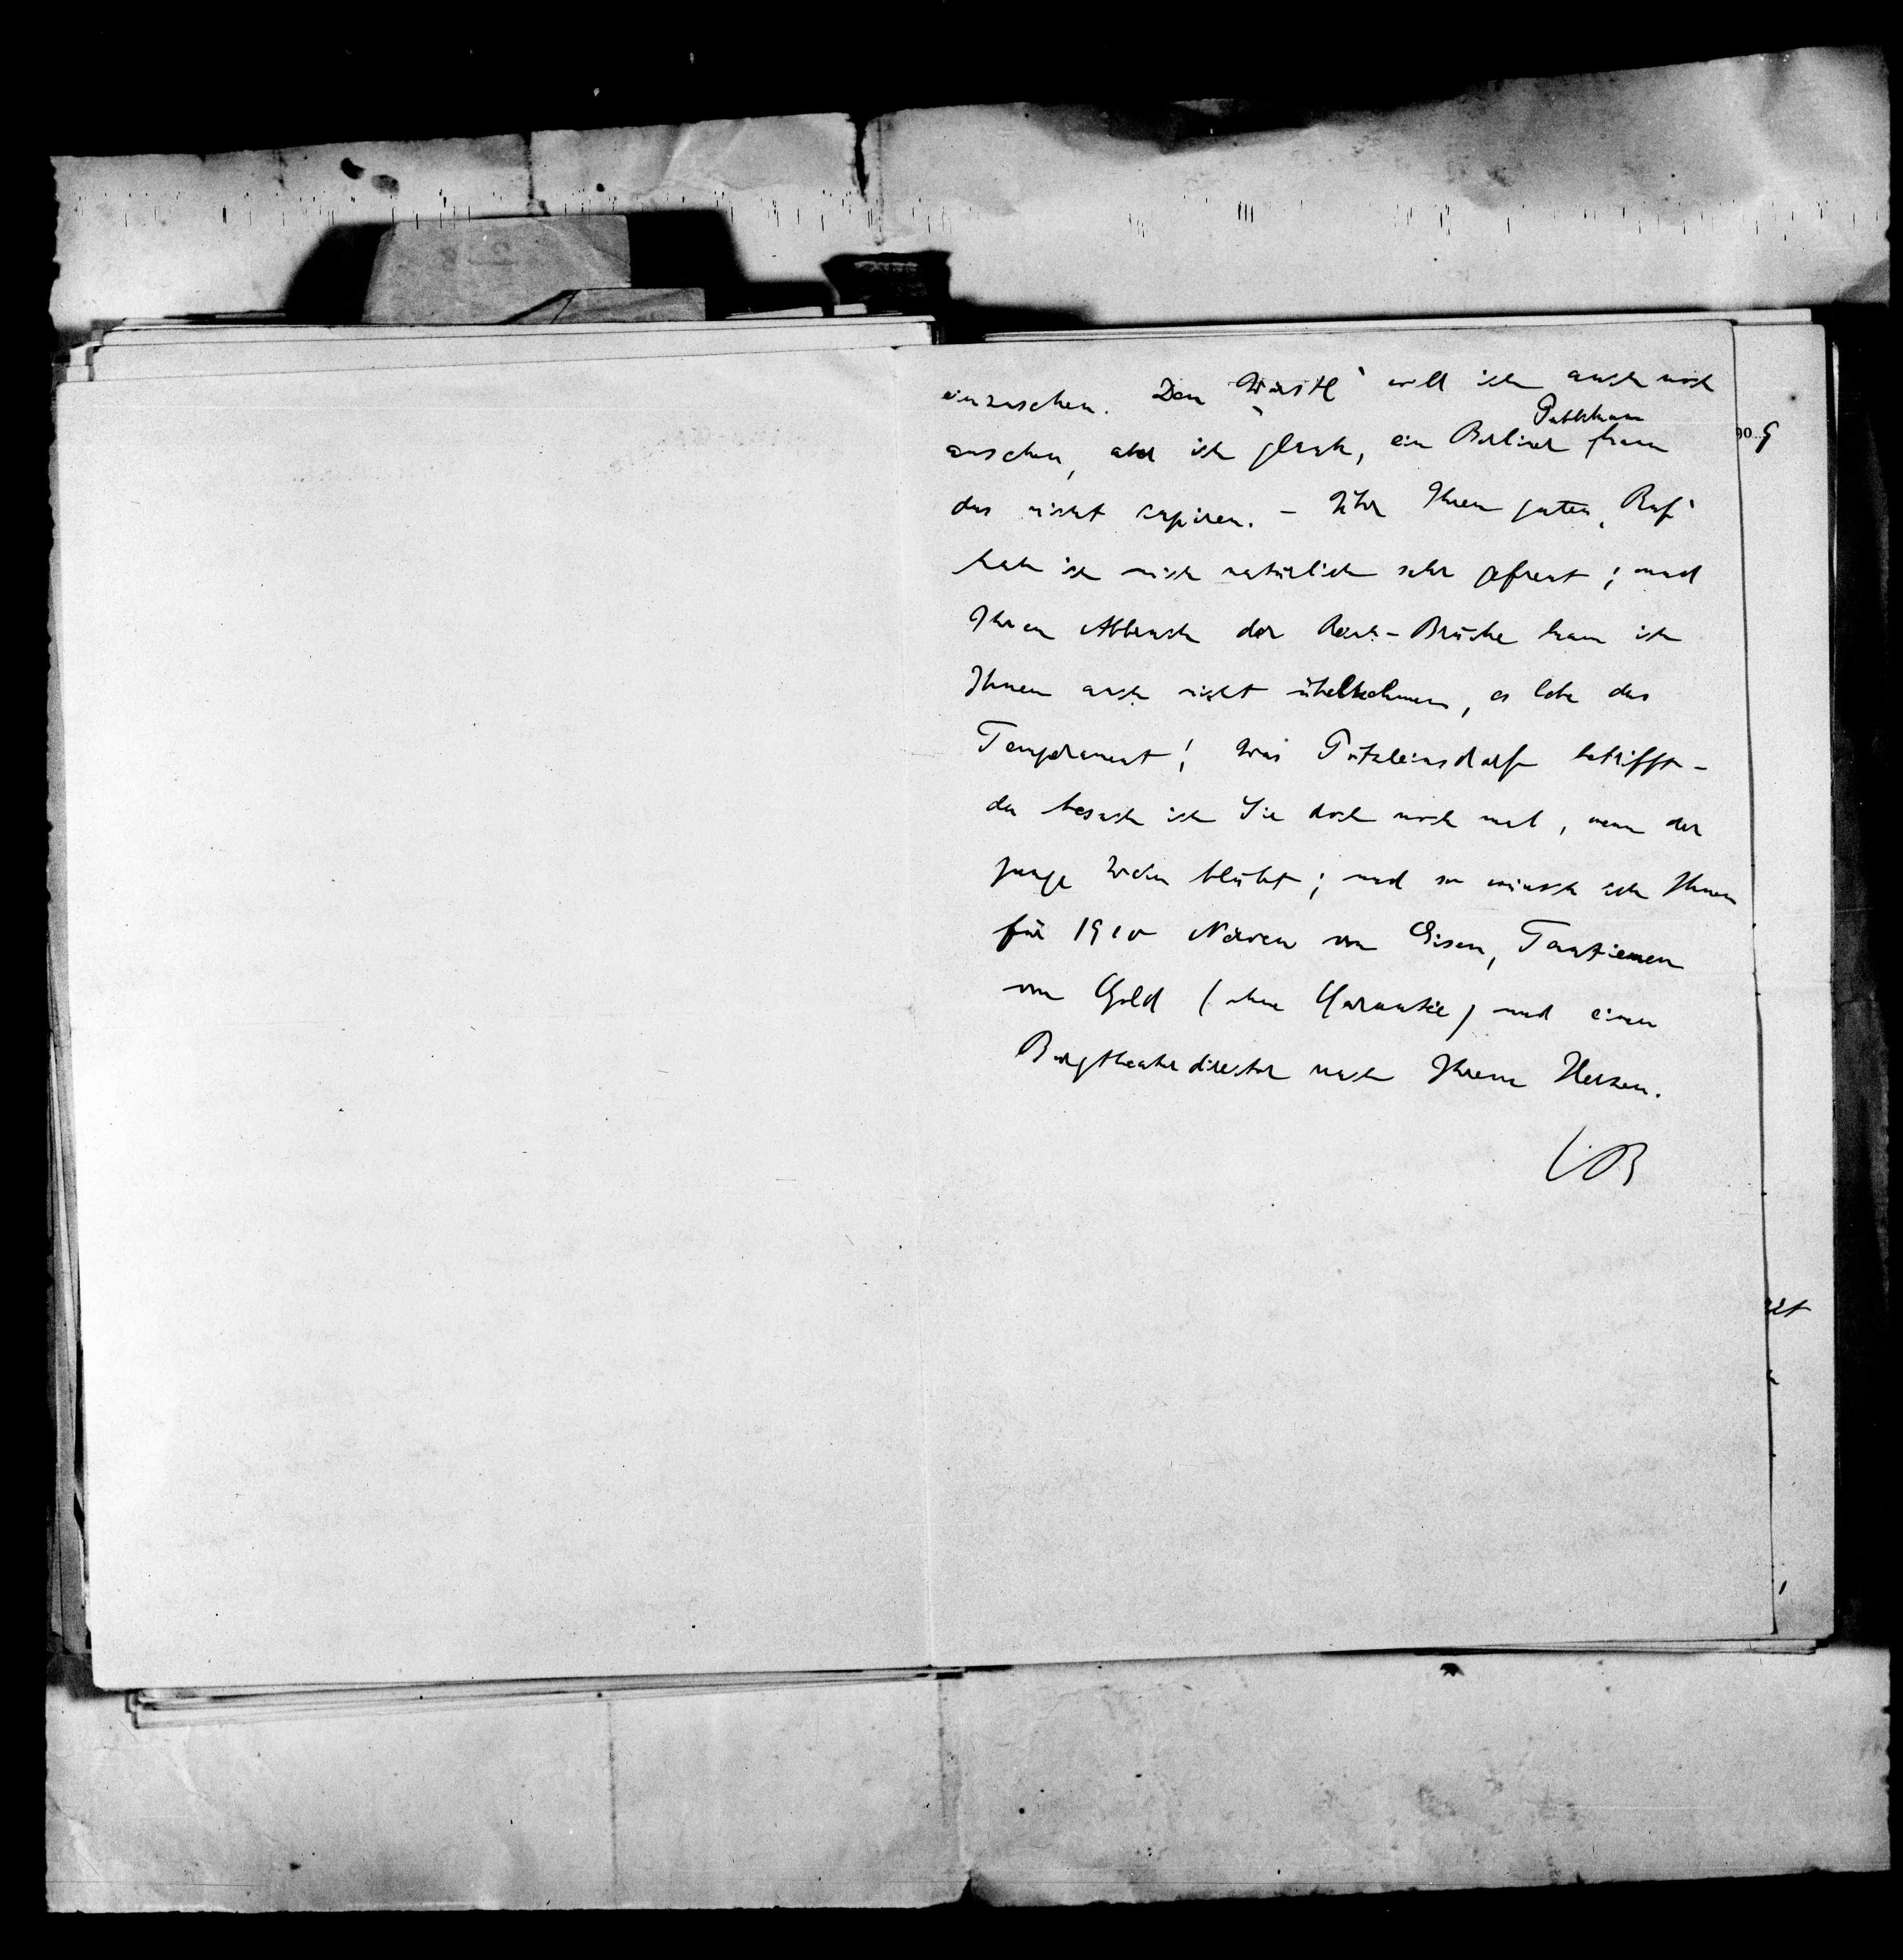 einzusehen. Den „Wurstl‘ will ich auch noch
ansehen, aber ich glaube, ein Berliner Publikum kann
das nicht kapiren. – Über Ihren guten „Ruf‘
habe ich mich natürlich sehr gefreut; und
Ihren Abbruch der - Brücke kann ich
Ihnen auch nicht übelnehmen, es lebe das
Temperament! Was Pötzleinsdorf betrifft –
da besuche ich Sie doch noch mal, wenn der
junge blüht; und so wünsche ich Ihnen
für 1910 Nerven von Eisen, Tantiemen
von Gold (ohne Garantie) und einen
Burgtheaterdirector nach Ihrem Herzen.
90.9